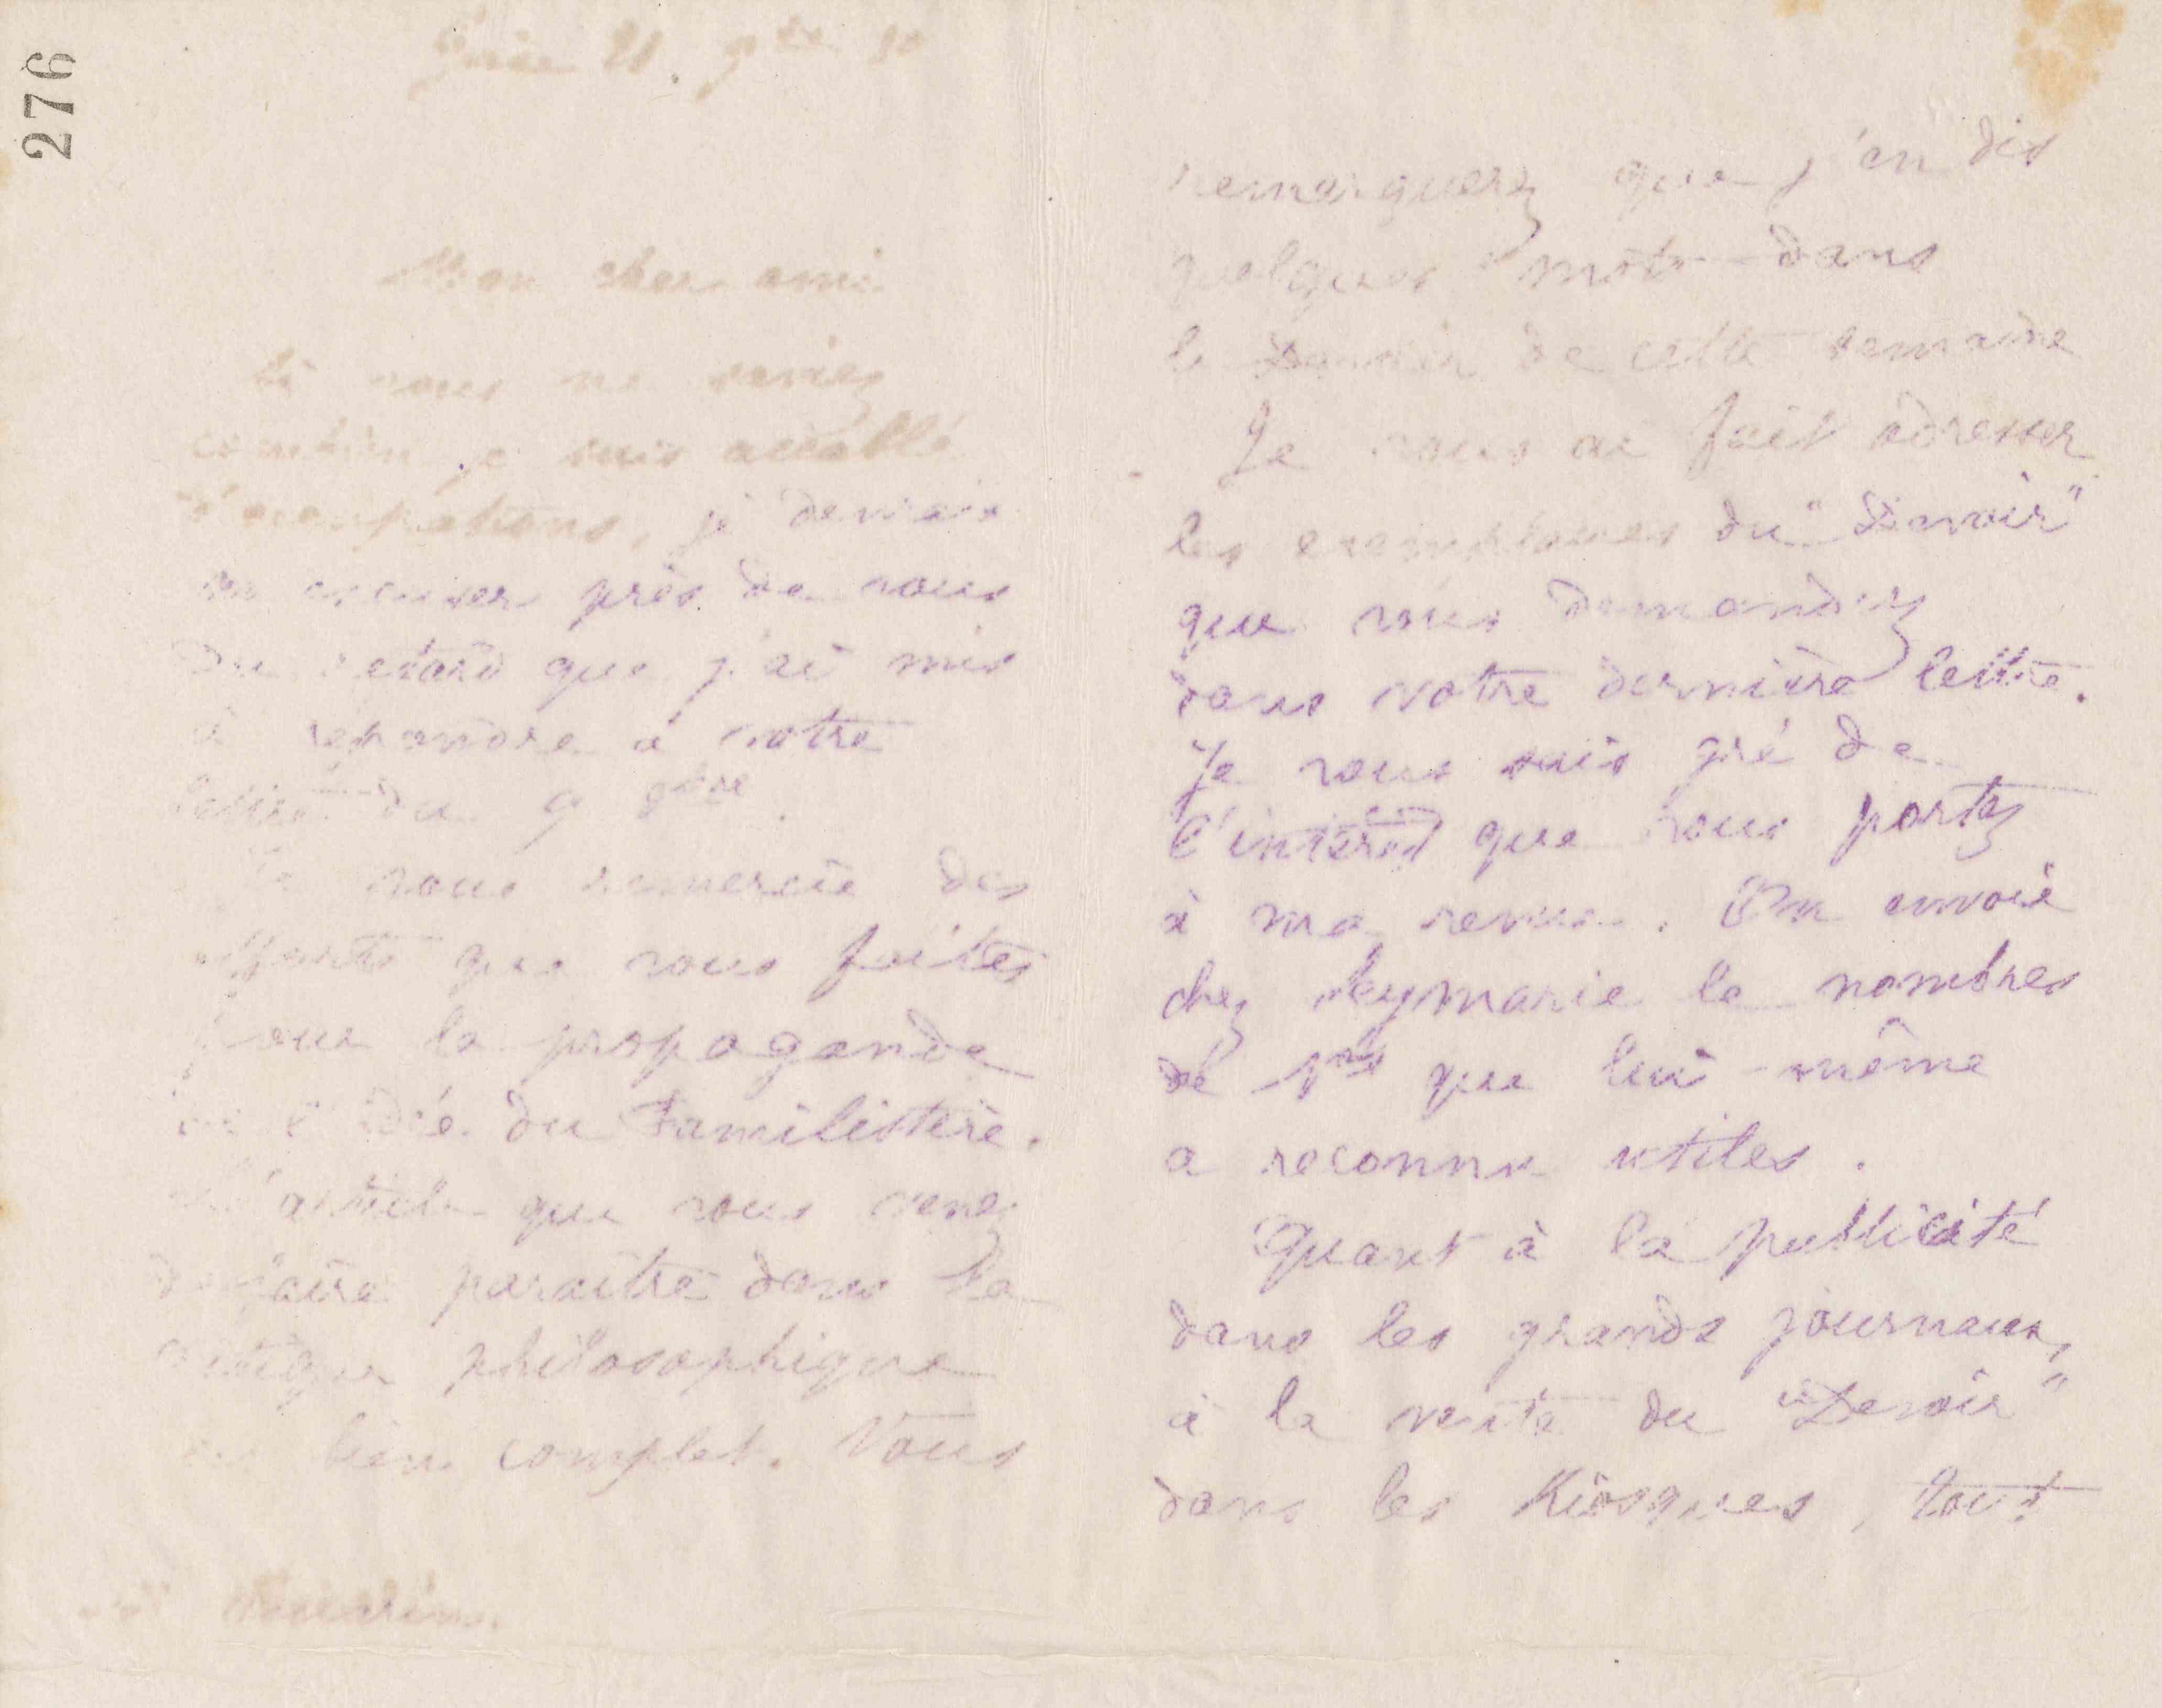 276
Guise 21. 9bre 80
Mon cher ami
Si vous ne saviez
combien je suis accablé
d'occupations, je devrais
m'excuser près de vous
du retard que j'ai mis
à répondre à votre
lettre du 9 9bre.
Je vous remercie des
efforts que vous faites
pour la propagande
de l'idée du Familistère.
L'article que vous venez
de faire paraître dans la
critique philosophique
est bien complet. Vous
remarquerez que j'en dis
quelques mots dans
le Devoir de cette semaine
Je vous ai fait adresser
les exemplaires du "Devoir"
que vous demandiez
dans votre dernière lettre.
Je vous sais gré de
l'intérêt que vous portez
à ma revue. On envoie
chez Leymarie le nombres
de nos que lui-même
a reconnu utiles.
Quant à la publicité
dans les grands journaux,
à la vente du "Devoir"
dans les Kiosques, tout